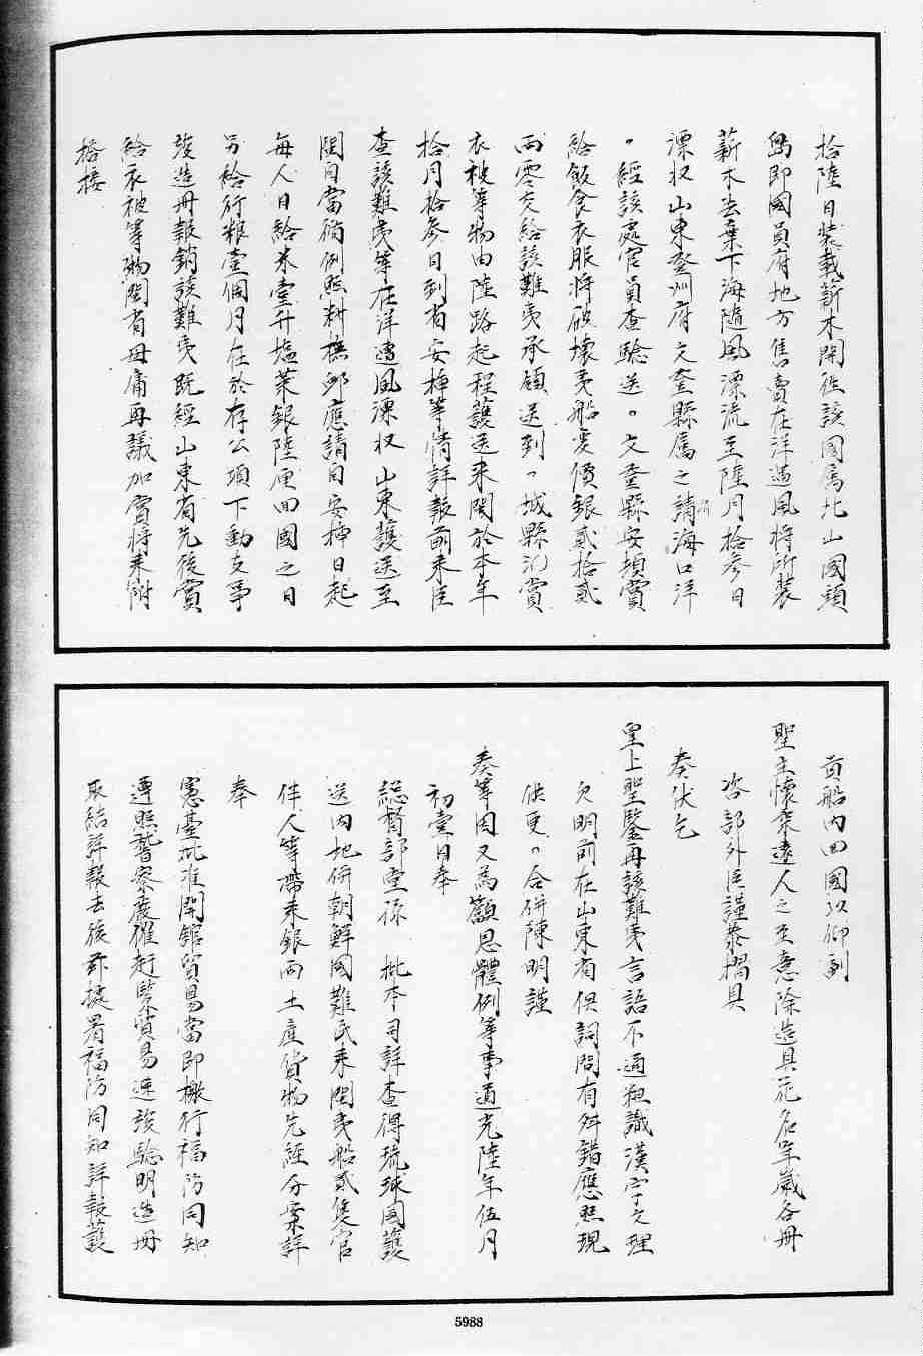 拾陸日裝載薪木開徃該國屬北山國頭
島即國貟府地方售賣在洋遇風將所裝
薪木丢棄下海隨風漂流至陸月拾叁日
漂收山東登州府文登縣屬之請海口洋
。經該處官員查驗送。文登縣安頓賞
給飯食衣服將破壞夷船変價銀貳拾貳
両零交給該難夷承領送到。城縣汃賞
衣被等物由陸路起程護送来閩於本年
拾月拾叁日到省安揷等情詳報前来臣
查該難夷等在洋遭風漂收山東護送至
閩自當循例照料撫卹應請自安揷日起
每人日給米壹升塩菜銀陸厘回國之日
另給行粮壹個月在於存公項下動支事
竣造册報銷該難夷既經山東省先後賞
給衣被等物閩省毋庸再議加賞将来附
搭接
貢船内回國以仰副
聖主懷柔遠人之至意除造具花名年歲各册
咨部外臣謹恭摺具
奏伏乞
皇上聖鑒再該難夷言語不通粗識漢字文理
欠明前在山東省供詞間有舛錯應照現
供更。合併陳明謹
奏等因又為籲恩體例等事道光陸年伍月
初壹日奉
総督部堂孫　批本司詳查得琉球國護
送内地併朝鮮國難民来閩夷船貳隻官
伴人等帶来銀両土産貨物先經分案詳
奉
憲臺批准開舘貿易當即檄行福防同知
遵照督察嚴催赶緊貿易速竣驗明造册
取結詳報去後茲據署福防同知詳報護
5988